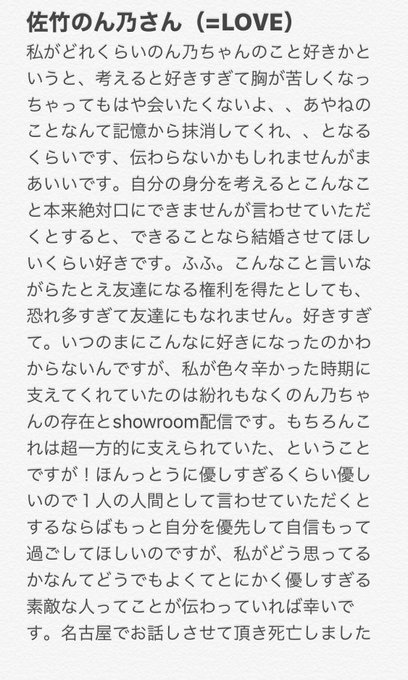 佐竹のん乃さん（=LOVE）
私がどれくらいのん乃ちゃんのこと好きかと
いうと、考えると好きすぎて胸が苦しくなっ
ちゃってもはや会いたくないよ、、あやねの
ことなんて記憶から抹消してくれ、、となる
くらいです、伝わらないかもしれませんがま
あいいです。自分の身分を考えるとこんなこ
と本来絶対口にできませんが言わせていただ
くとすると、できることなら結婚させてほし
いくらい好きです。ふふ。こんなこと言いな
がらたとえ友達になる権利を得たとしても、
恐れ多すぎて友達にもなれません。好きすぎ
て。いつのまにこんなに好きになったのかわ
からないんですが、私が色々辛かった時期に
支えてくれていたのは紛れもなくのん乃ちゃ
んの存在とshowroom配信です。もちろんこ
れは超一方的に支えられていた、ということ
ですが！ほんっとうに優しすぎるくらい優し
いので１人の人間として言わせていただくと
するならばもっと自分を優先して自信もって
過ごしてほしいのですが、私がどう思ってる
かなんてどうでもよくてとにかく優しすぎる
素敵な人ってことが伝わっていれば幸いで
す。名古屋でお話しさせて頂き死亡しました